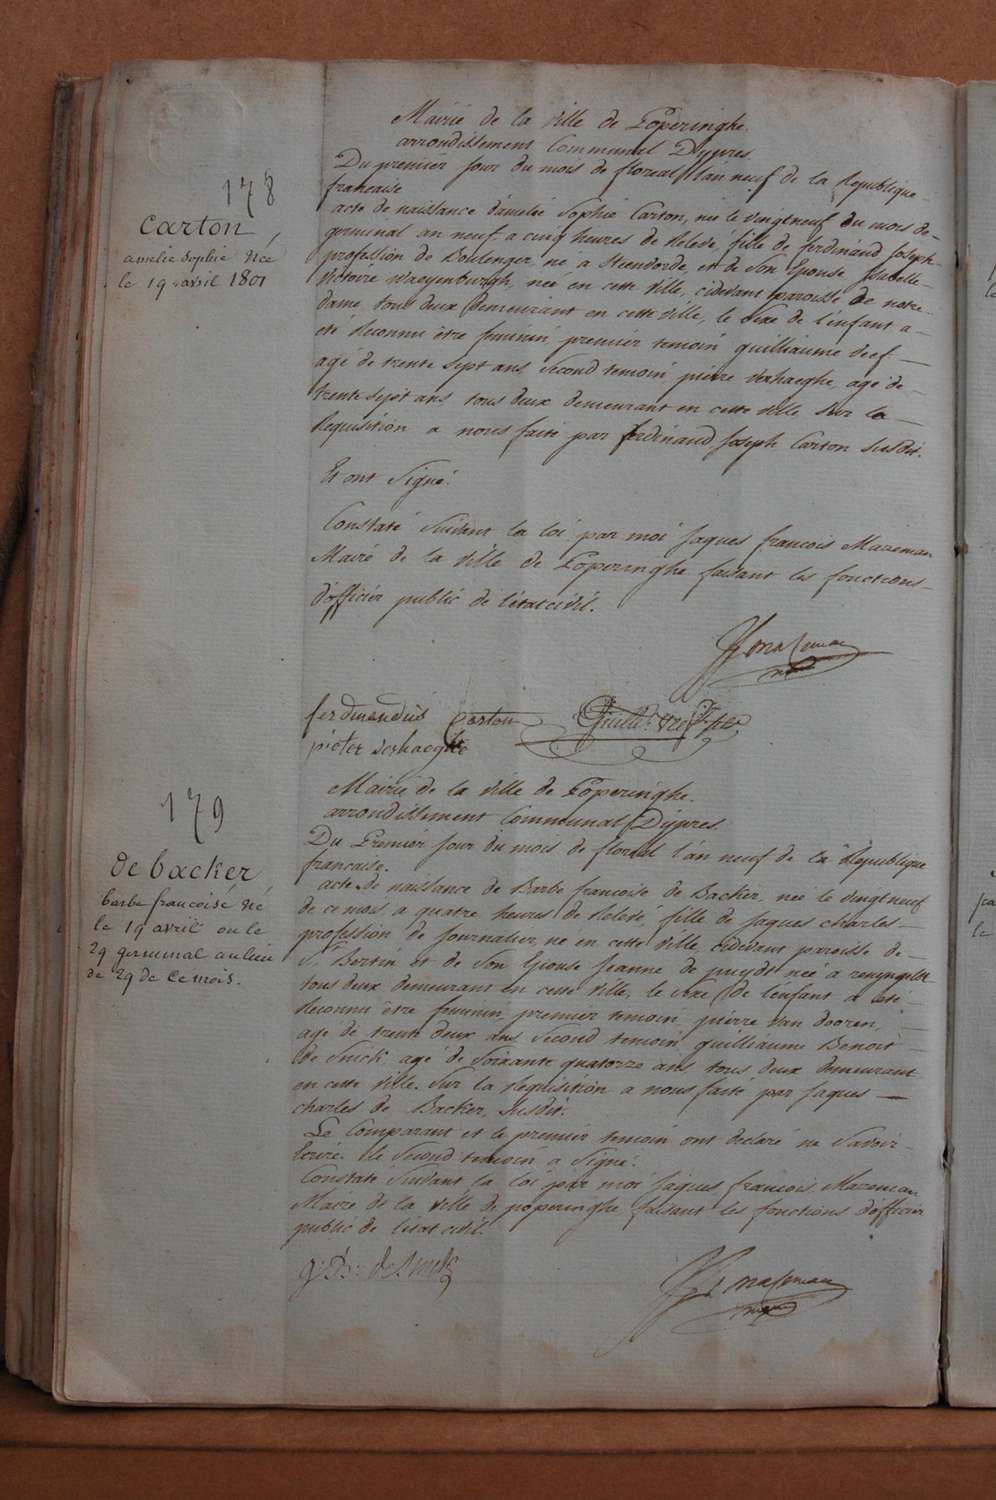 178
Carton
amelie sophie Née
le 19 avril 1801
Mairie de la ville de Poperinghe.
arrondissement Communal D'ypres.
Du premier jour du mois de floreal l'an neuf de la Republique
francaise
acte de naissance d'amelie Sophie Carton, née le vingtneuf du mois de
germinal an neuf a cinq heures de Relevé, fille de ferdinand Joseph
profession de Boulenger, né a Steenvorde, et de son Epouse Isabelle
victoire waeyenburgh, née en cette ville, cidevant paroisse de notre
dame, tous deux demeurant en cette ville, le sexe de l'enfant a
eté Reconnu être feminin, premier temoin guilliaume
agé de trente sept ans second temoin pierre verhaeghe, agé de
trente sept ans tous deux demeurant en cette ville sur la
Requisition a nous faite par ferdinand Joseph Carton susdit.
Et ont signé.
Constaté suivant la loi par moi Jaques francois Mazeman
Maire de la ville de Poperinghe faisant les fonctions
d'officier public de l'etat civil.
ferdinandus Carton
pieter verhaeghe
179
de backer
barbe francoise né
le 19 avril ou le
29 germinal au lieu
de 29 de ce mois.
Mairie de la ville de Poperinghe.
arrondissement Communal D'ypres.
Du Premier jour du mois de floreal l'an neuf de la Republique
francaise.
acte de naissance de Barbe francoise de Backer, née le vingt neuf
de ce mois a quatre heures de Relevé, fille de Jaques charles
profession de Journalier, né en cette ville cidevant paroisse de
St Bertin et de son Epouse Jeanne de puydt née a renynghelst
tous deux demeurant en cette ville, le sexe de l'enfant a eté
Reconnu être feminin, premier temoin pierre van dooren,
agé de trente deux ans second temoin guilliaume Benoit
de Snick agé de soixante quatorze ans tous deux demeurant
en cette ville. sur la Requisition a nous faite par Jaques
charles de Backer, susdit.
Le Comparant et le premier temoin ont declaré ne savoir
Ecrire. le second temoin a signé.
Constaté suivant la loi par moi Jaques francois Mazeman
Maire de la ville de poperinghe faisant les fonctions d'officier
public de l'etat civil.